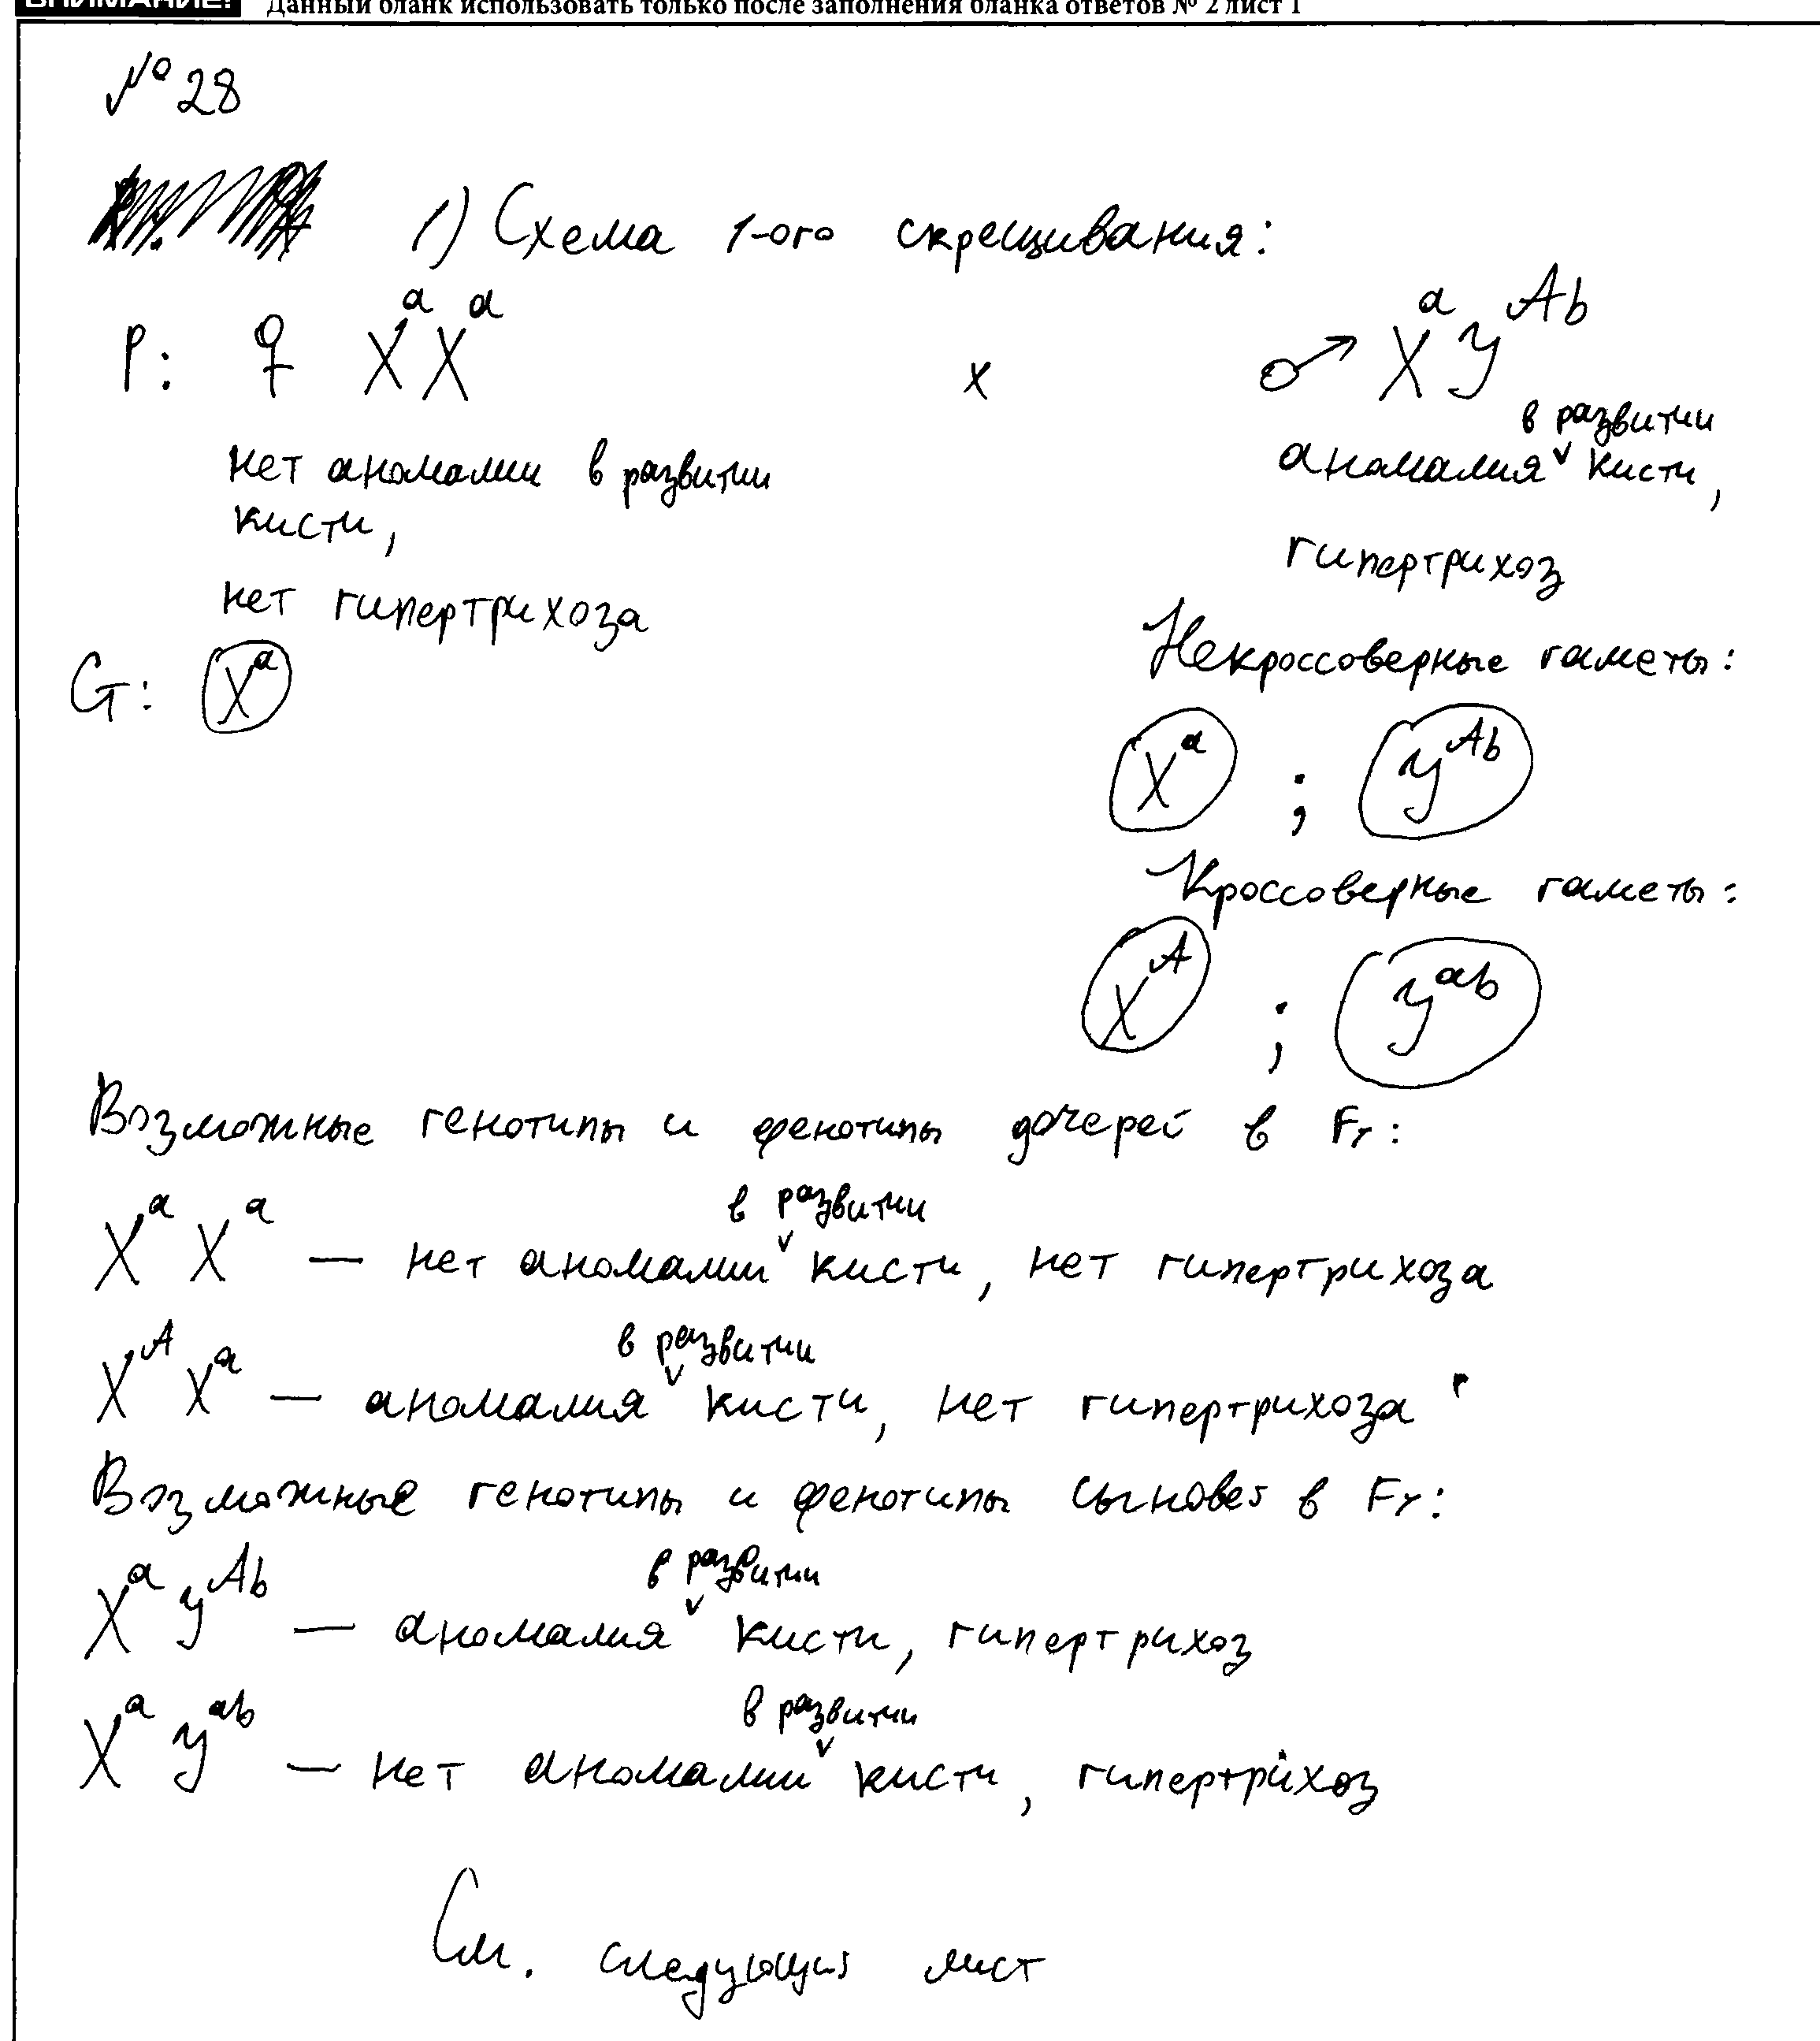 ВНИМАНИЕ! Данный бланк использовать только после заполнения бланка ответов № 2 лист 1
№ 28
1) Схема 1-ого скрещивания:
P: ♀ XᵃXᵃ x ♂ XᵃYᴬᵇ
нет аномалии в развитии кисти,
нет гипертрихоза
аномалия в развитии кисти,
гипертрихоз
G: Xᵃ
Некроссоверные гаметы:
Xᵃ ; Yᴬᵇ
Кроссоверные гаметы:
Xᴬ ; Yᵃᵇ
Возможные генотипы и фенотипы дочерей в F₁:
XᵃXᵃ — нет аномалии в развитии кисти, нет гипертрихоза
XᴬXᵃ — аномалия в развитии кисти, нет гипертрихоза
Возможные генотипы и фенотипы сыновей в F₁:
XᵃYᴬᵇ — аномалия в развитии кисти, гипертрихоз
XᵃYᵃᵇ — нет аномалии в развитии кисти, гипертрихоз
См. следующий лист